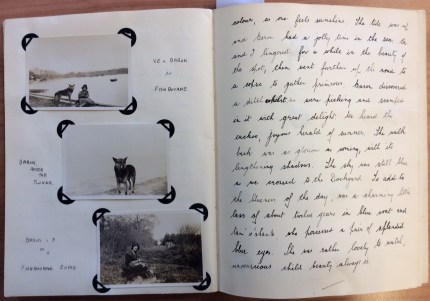 VE & BARON
AT
FISHBOURNE
BARON
AFTER
THE
BARON & P
IN
FISHBOURNE
colour, as one feels sunshine. The tide was up
and Baron had a jolly time in the sea. He
and I lingered for a while in the beauty of
the spot, then went further up the road to
a copse to gather primroses. Baron discovered
a ditch whilst we were picking and
in it with great delight. We heard the
cuckoo, joyous herald of summer. The walk
back was as glorious in evening, with its
lengthening shadows. The sky was still blue
as we crossed to the Dockyard. To add to
the blueness of the day, was a charming little
lass of about twelve years in blue coat and
hat she possessed a pair of splendid
blue eyes. She was rather lovely to watch,
unconscious child beauty always is